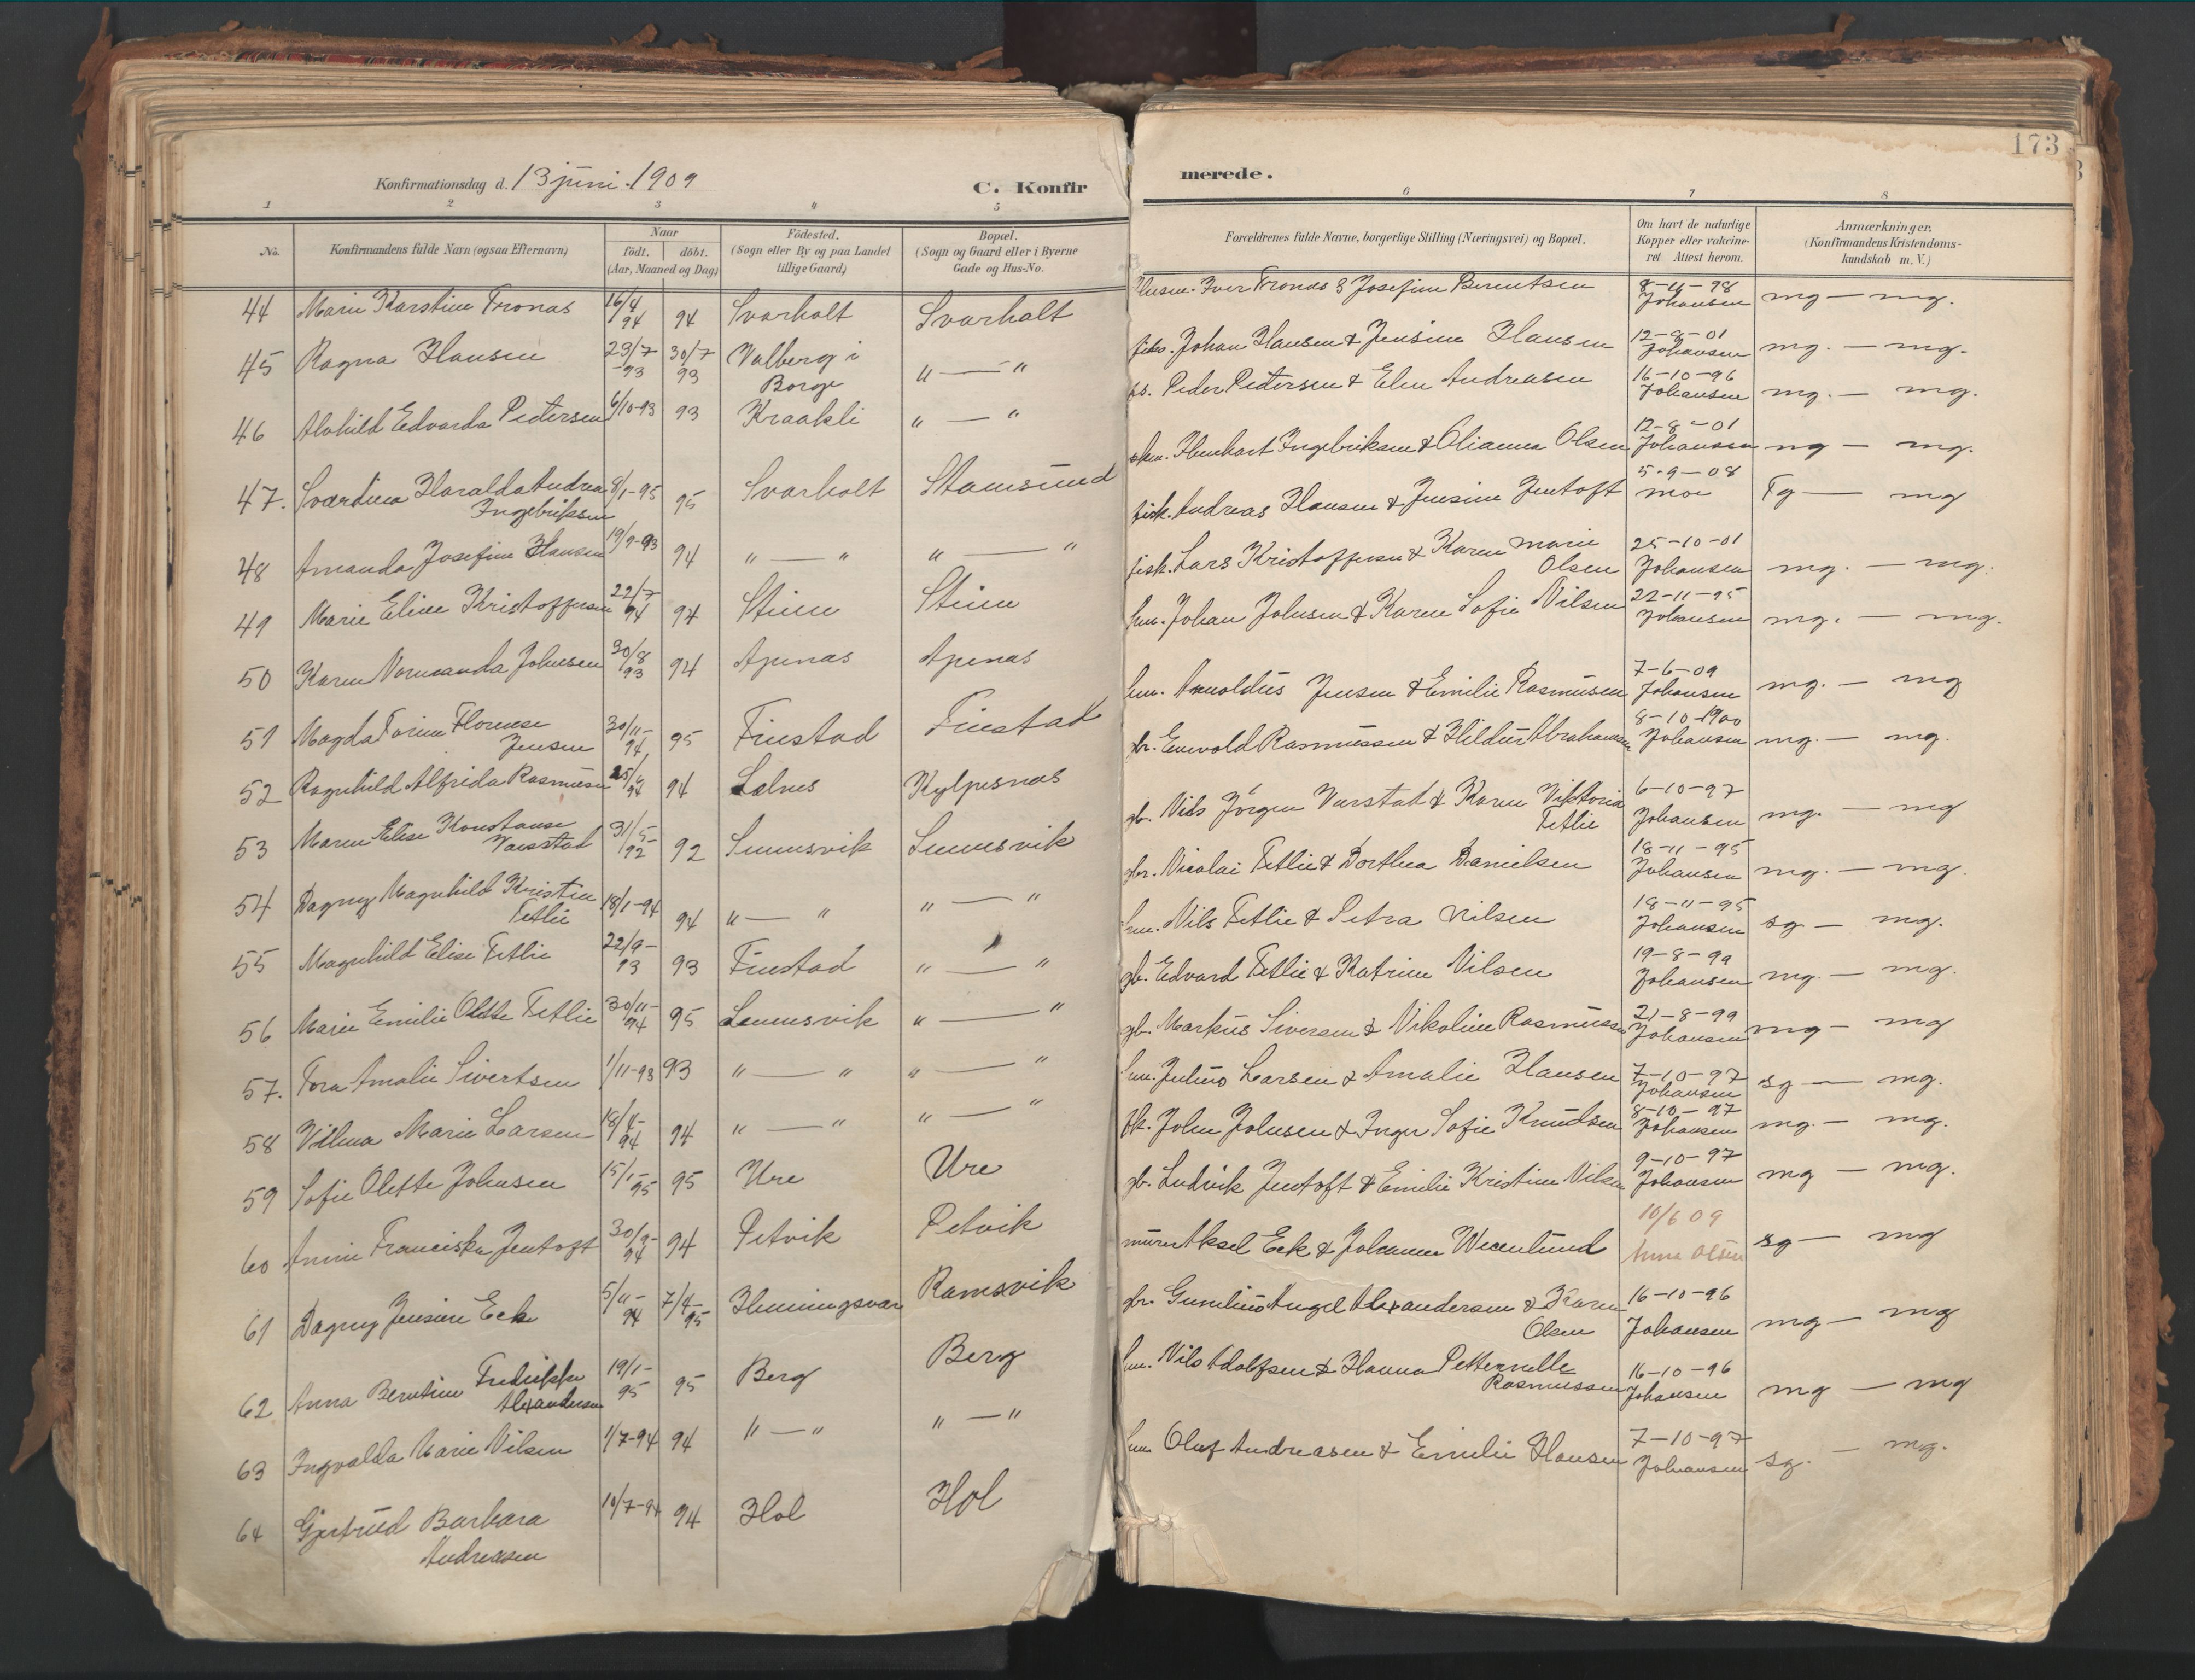 173
Konfirmationsdag d. 13 juni 1909
C. Konfir
merede.
1 2 3 4 5
6 7 8
No.
Konfirmandens fulde Navn (ogsaa Efternavn)
Naar
födt. döbt.
(Aar, Maaned og Dag)
Födested.
(Sogn eller By og paa Landet
tillige Gaard)
Bopæl.
(Sogn og Gaard eller i Byerne
Gade og Hus-No.
Forældrenes fulde Navne, borgerlige Stilling (Næringsvei) og Bopæl.
Om havt de naturlige
Kopper eller vakcine-
ret. Attest herom.
Anmærkninger.
(Konfirmandens Kristendoms-
kundskab m. V.)
44 Marie Karstine Tronas 16/4 94 94 Svarholt Svarholt
Husm. Iver Tronas & Josefine Berentsen 8-11-98 Johansen mg — mg.
45 Ragna Hansen 29/7 -93 30/7 93 Valberg i Borge " — "
fisk. Johan Hansen & Jensine Hansen 12-8-01 Johansen mg. — mg.
46 Alvhild Edvarda Pedersen 6/10-93 93 Kraakli " — "
Peder Pedersen & Elen Andreasen 16-10-96 Johansen mg. — mg.
47. Sverdina Haralda Andrea Ingebriksen 8/1-95 95 Svarholt Stamsund
Ingebriksen & Olianna Olsen 12-8-01 Johansen mg — mg.
48 Amanda Josefine Hansen 19/9-93 94 " — " " — "
fisk. Andreas Hansen & Jensine Jentoft 5-9-08 moe Tg — mg
49 Marie Eline Kristoffersen 22/7 94 94 Stene Stene
fisk. Lars Kristoffersen & Karen Marie Olsen 25-10-01 Johansen mg. — mg.
50 Karen Normanda Johnsen 30/8 93 94 Apenas Apenas
hm. Johan Johnsen & Karen Sofie Nilsen 22-11-95 Johansen mg. — mg.
51 Magda Torine Florense Jensen 30/11- 94 95 Finstad Finstad
hm. Arnoldus Jensen & Emilie Rasmusen 7-6-09 Johansen mg. — mg
52 Ragnhild Alfrida Rasmusen 94 94 Kylpesnas
gbr. Enevold Rasmussen & Hildur Abrahamsen 8-10-1900 Johansen mg. — mg.
53 Maren Elise Konstanse Vaerstad 31/5- 92 92 Sennesvik Sennesvik
gb. Nils Jörgen Verstat & Karen Viktoria Fetlie 6-10-97 Johansen mg. — mg
54 Dagny Magnhild Kristin Fetlie 18/1-94 94 " — " " — "
gbr. Nicolai Fetlie & Dorthea Danielsen 18-11-95 Johansen mg. — mg.
55 Magnhild Elise Fetlie 22/9- 93 93 Finstad " — "
hm. Nils Fetlie & Petra Nilsen 18-11-95 Johansen sg — mg.
56 Marie Emilie Olette Fetlie 30/11- 94 95 Sennesvik " — "
gb. Edvard Fetlie & Katrine Nilsen 19-8-99 Johansen mg. — mg.
57. Tora Amalie Sivertsen 1/11-93 93 " — " " — "
gb. Markus Siversen & Nikoline Rasmussen 21-8-99 Johansen mg — mg
58 Vilma Marie Larsen 18/4- 94 94 " — " " — "
hm. Julius Larsen & Amalie Hansen 7-10-97 Johansen sg — mg.
59 Sofie Olette Johnsen 15/1- 95 95 Ure Ure
fk. John Johnsen & Inger Sofie Knudsen 8-10-97 Johansen mg. — mg.
60 Annie Franciska Jentoft 30/9- 94 94 Petvik Petvik
gb. Ludvik Jentoft & Emilie Kristine Nilsen 9-10-97 Johansen mg — mg.
61 Dagny Jensine Eck 5/11- 94 7/4- 95 Henningsvær Ramsvik
murer Aksel Eck & Johanna Wecenlund 10/6 09 Anna Olsen sg — mg
62 Anna Berntine Fredrikke Alexandersen 19/1- 95 95 Berg Berg
gbr. Gunelius Angel Alexandersen & Karen Olsen 16-10-96 Johansen mg — mg
63 Ingvalda Marie Nilsen 1/7-94 94 " — " " — "
hm. Nils Adolfsen & Hanna Petternelle Rasmussen 16-10-96 Johansen mg — mg
64 Gjertrud Barbara Andreasen 10/7-94 94 Hol Hol
hm. Oluf Andreasen & Emilie Hansen 7-10-97 Johansen sg. — mg.